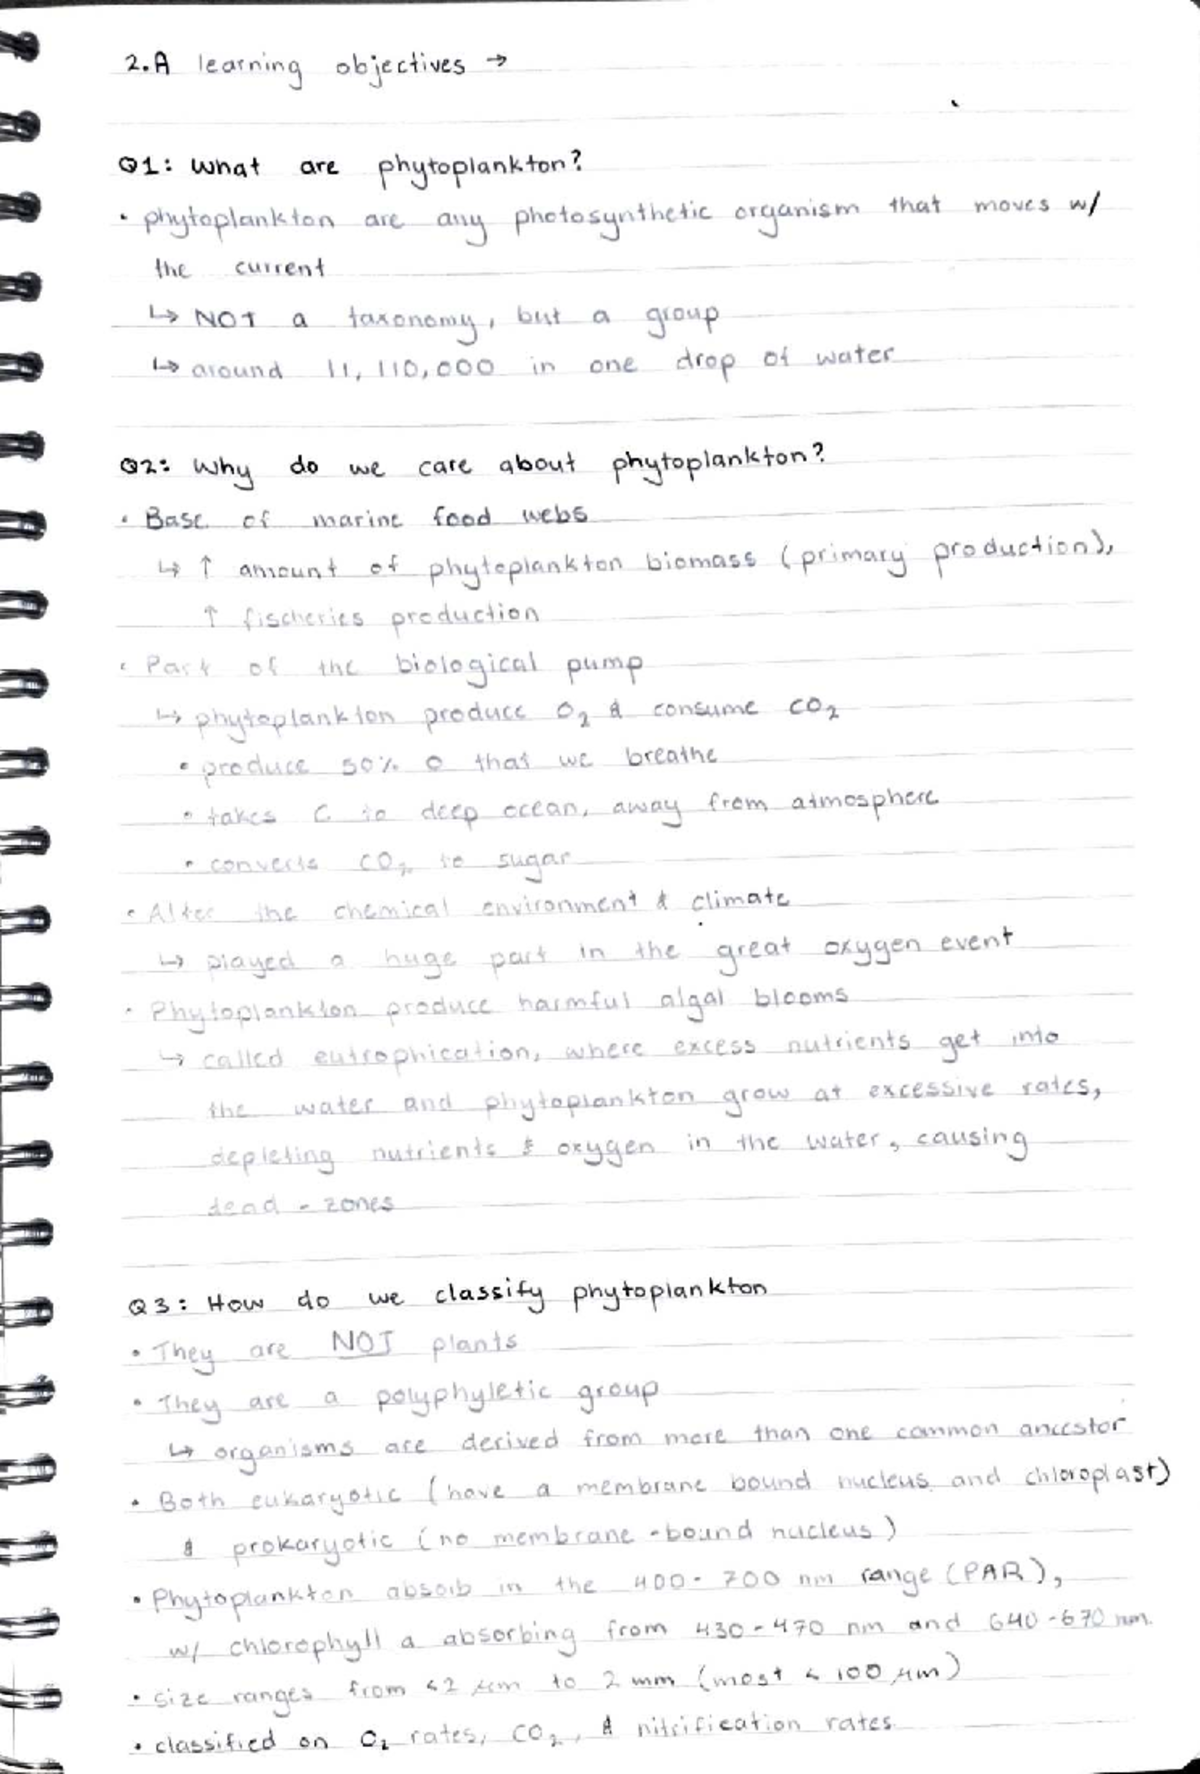 2.A learning objectives →
Q1: What are phytoplankton?
• phytoplankton are any photosynthetic organism that moves w/
the current
↳ NOT a taxonomy, but a group
↳ around 11,110,000 in one drop of water
Q2: Why do we care about phytoplankton?
• Base of marine food webs
↳ ↑ amount of phytoplankton biomass (primary production),
↑ fischeries production
• Part of the biological pump
↳ phytoplankton produce O₂ & consume CO₂
• produce 50% O that we breathe
• takes C to deep ocean, away from atmosphere
• converts CO₂ to sugar
• Alter the chemical environment & climate
↳ played a huge part in the great oxygen event
• Phytoplankton produce harmful algal blooms
↳ called eutrophication, where excess nutrients get into
the water and phytoplankton grow at excessive rates,
depleting nutrients & oxygen in the water, causing
dead-zones
Q3: How do we classify phytoplankton
• They are NOT plants
• They are a polyphyletic group
↳ organisms are derived from more than one common ancestor
• Both eukaryotic (have a membrane bound nucleus and chloroplast)
& prokaryotic (no membrane-bound nucleus)
• Phytoplankton absorb in the 400-700 nm range (PAR),
w/ chlorophyll a absorbing from 430-470 nm and 640-670 nm.
• size ranges from <2 μm to 2 mm (most < 100 μm)
• classified on O₂ rates, CO₂, & nitrification rates